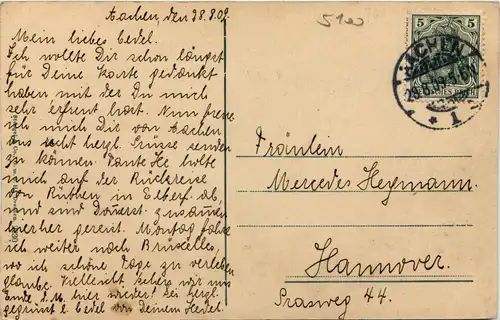 Aachen, den 28.8.09.
Mein liebes Cedel.
Ich wollte Dir schon längst
für Deine Karte gedankt
haben mit der Du mich
sehr erfreut hast. Nun freue
ich mich Dir von Aachen
aus recht hergl. Grüsse senden
zu können. Tante He holte
mich auf der Rückreise
von Rüthen in Elberf. ab,
und sind Donerst. zusamen
hierher gereist. Montag fahre
ich weiter nach Brüscelles,
wo ich schöne Tage zu verleben
glaube. Vielleicht sehn wir uns
Ende d. M. hier wieder! Sei hergl.
gegrüsst l. Cedel von Deinem Hedel.
5
5
AACHEN
28.8.09
1
Fräulein
Mercedes Heymann.
Hannover.
Grasweg 44.